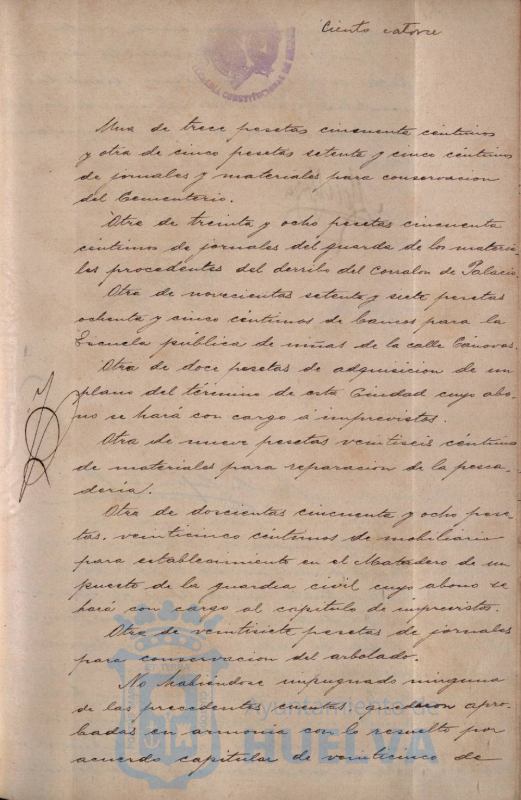 Ciento catorce
ALCALDIA CONSTITUCIONAL DE HUELVA
Una de trece pesetas cincuenta céntimos
y otra de cinco pesetas setenta y cinco céntimos
de jornales y materiales para conservacion
del Cementerio.
Otra de treinta y ocho pesetas cincuenta
céntimos de jornales del guarda de los materia-
les procedentes del derribo del corralon de Palacio.
Otra de novecientas setenta y siete pesetas
ochenta y cinco céntimos de bancos para la
Escuela pública de niñas de la calle Cánovas.
Otra de doce pesetas de adquisicion de un
plano del término de esta Ciudad cuyo abo-
no se hará con cargo á imprevistos.
Otra de nueve pesetas veintiseis céntimos
de materiales para reparacion de la pesca-
dería.
Otra de doscientas cincuenta y ocho pese-
tas, veinticinco céntimos de mobiliario
para establecimiento en el Matadero de un
puesto de la guardia civil cuyo abono se
hará con cargo al capítulo de imprevistos.
Otra de veintisiete pesetas de jornales
para conservacion del arbolado.
No habiéndose impugnado ninguna
de las precedentes cuentas, quedaron apro-
badas en armonia con lo resuelto por
acuerdo capitular de veinticinco de
Ayuntamiento de
HUELVA